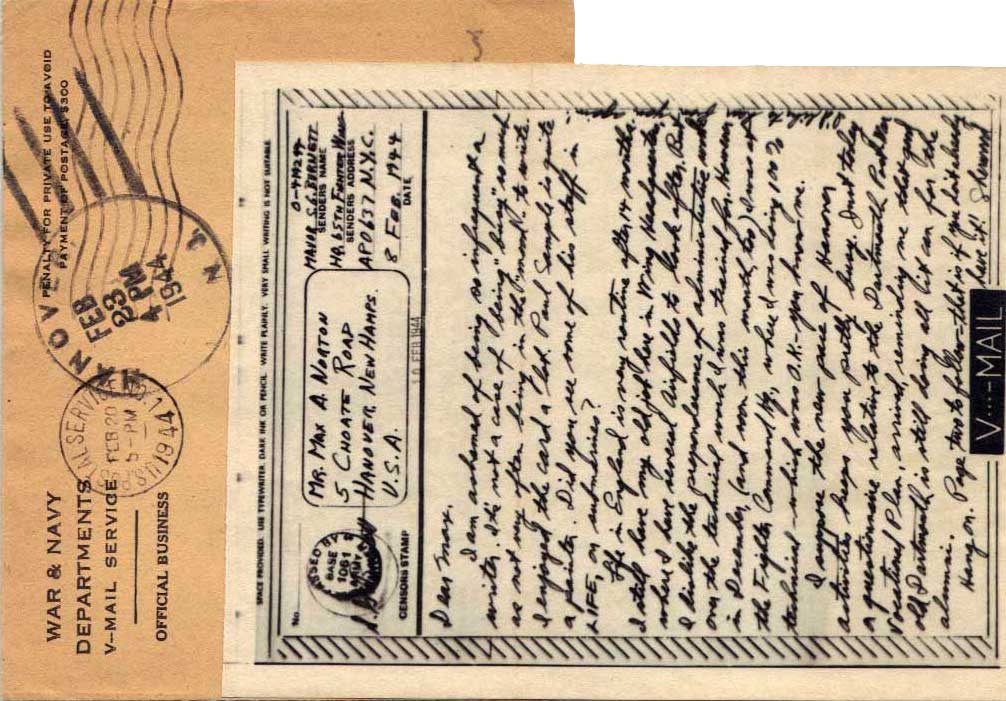 WAR & NAVY
DEPARTMENTS
V-MAIL SERVICE
OFFICIAL BUSINESS
PENALTY FOR PRIVATE USE TO AVOID
PAYMENT OF POSTAGE, $300
HANOVER
FEB
23
4 PM
1944
N.
POSTAL SERVICE
FEB 20
5-PM
1944
SPACE PROVIDED. USE TYPEWRITER, DARK INK OR PENCIL. WRITE PLAINLY. VERY SMALL WRITING IS NOT SUITABLE.
No.
PASSED BY
BASE
1061
ARMY
CENSOR'S STAMP
MR. MAX A. NORTON
5 CHOATE ROAD
HANOVER, NEW HAMPS.
U.S.A.
MAJOR S. BIRNETT
SENDERS NAME
HQ. 65TH FIGHTER WING
SENDERS ADDRESS
APO 637 N.Y.C.
8 FEB. 1944
DATE
10 FEB 1944
Dear Max,
I am ashamed of being so infrequent a
writer. It's not a case of "being" busy" so much
as not very often being in the "mood" to write.
I enjoyed the card a lot. Paul Sample is quite
a painter. Did you see some of his stuff in
LIFE, on submarines?
Life in England is very routine after 14 months.
I still have my old job here in Wing Headquarters
where I have several airfields to look after. But
I dislike the preponderance of administrative work
over the technical work I was trained for. However,
in December, (and now this month too) I was at
the Fighter Command Hq, where I was being 100%
technical - which was O.K. - you know me.
I suppose the new pace of Hanover
activities keeps you pretty busy. Just today
a questionnaire relating to the Dartmouth
Vocational Plan, arrived, reminding me that good
old Dartmouth is still doing all it can for the
alumni.
Hang on. Page two to follow - that is if you
have it! Sherwood
V...-MAIL